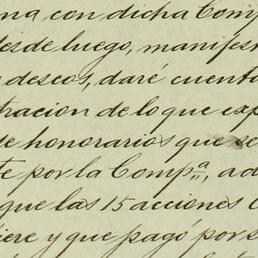 ma con dicha Comp
desde luego, manifes
deseos, daré cuenta
tracion de lo que exp
de honorarios que se
te por la Comp.ª, ad
que las 15 acciones
iere y que pagó por s